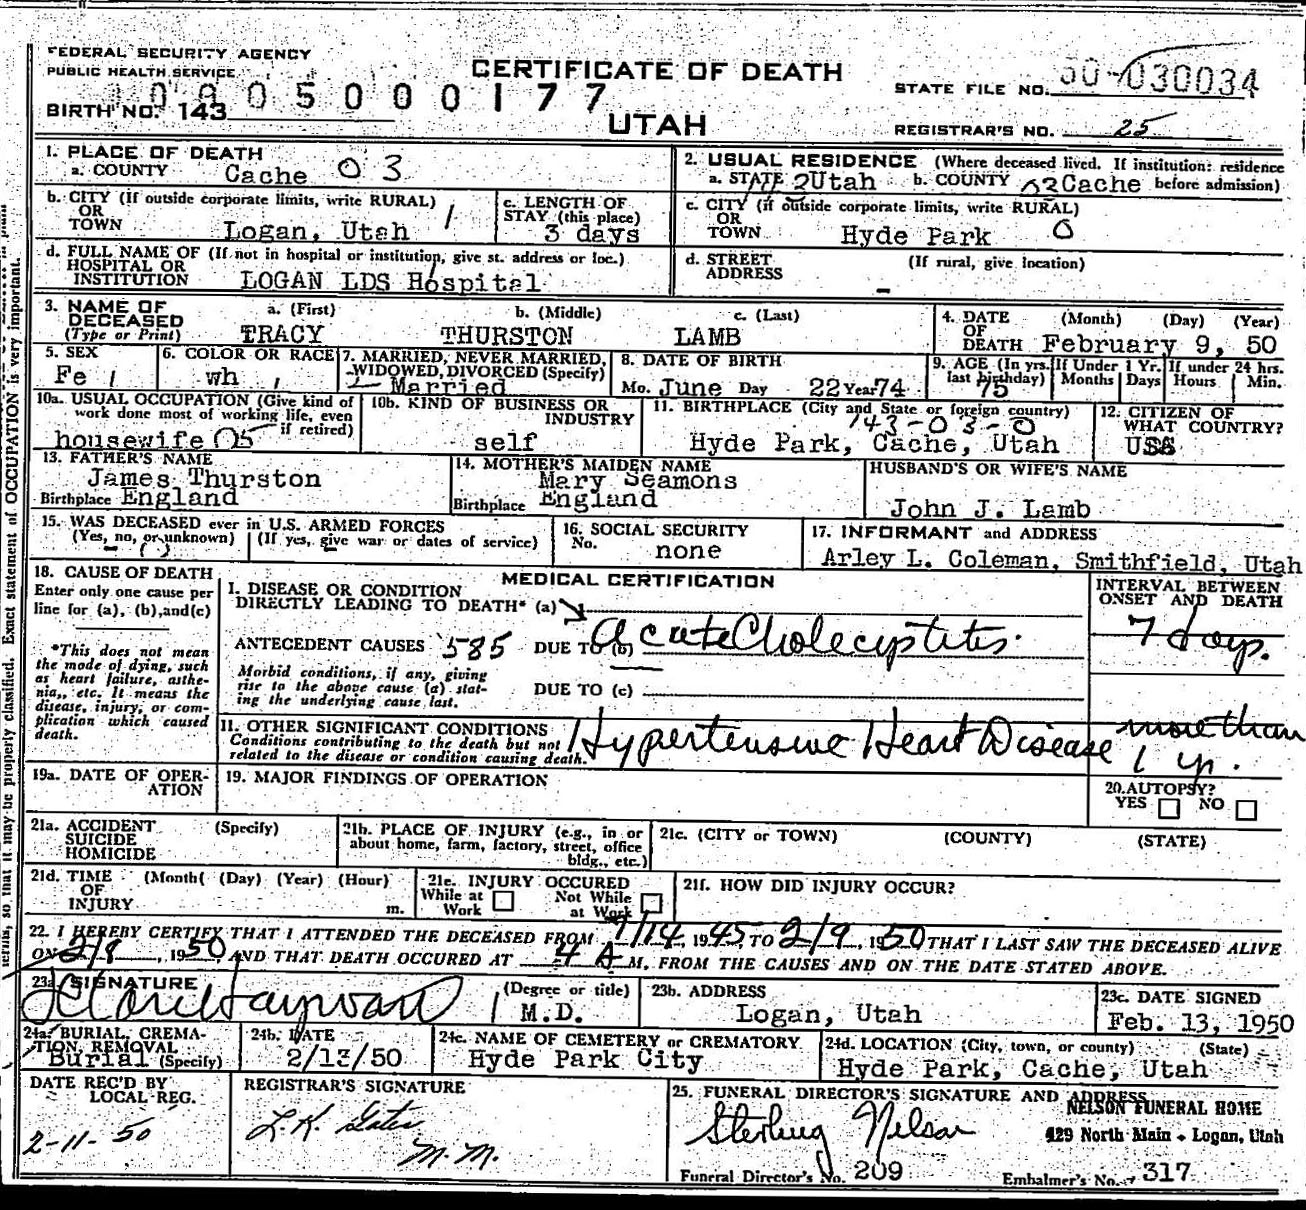 FEDERAL SECURITY AGENCY
PUBLIC HEALTH SERVICE
10905000177
BIRTH NO. 143
CERTIFICATE OF DEATH
UTAH
STATE FILE NO. 50-030034
REGISTRAR'S NO. 25
1. PLACE OF DEATH
a. COUNTY Cache 03
2. USUAL RESIDENCE (Where deceased lived. If institution: residence
a. STATE Utah b. COUNTY 03 Cache before admission)
b. CITY (If outside corporate limits, write RURAL)
OR
TOWN Logan, Utah
c. LENGTH OF
STAY (this place)
3 days
c. CITY (if outside corporate limits, write RURAL)
OR
TOWN Hyde Park 0
d. FULL NAME OF (If not in hospital or institution, give st. address or loc.)
HOSPITAL OR
INSTITUTION LOGAN LDS Hospital
d. STREET (If rural, give location)
ADDRESS -
3. NAME OF DECEASED
(Type or Print)
a. (First) b. (Middle) c. (Last)
TRACY THURSTON LAMB
4. DATE (Month) (Day) (Year)
OF
DEATH February 9, 50
5. SEX
Fe 1
6. COLOR OR RACE
wh
7. MARRIED, NEVER MARRIED,
WIDOWED, DIVORCED (Specify)
Married
8. DATE OF BIRTH
Mo. June Day 22 Year 74
9. AGE (In yrs.
last birthday)
75
If Under 1 Yr.
Months Days
If under 24 hrs.
Hours Min.
10a. USUAL OCCUPATION (Give kind of
work done most of working life, even
if retired)
housewife 05
10b. KIND OF BUSINESS OR
INDUSTRY
self
11. BIRTHPLACE (City and State or foreign country)
143-03-0
Hyde Park, Cache, Utah
12. CITIZEN OF
WHAT COUNTRY?
USA
13. FATHER'S NAME
James Thurston
Birthplace England
14. MOTHER'S MAIDEN NAME
Mary Seamons
Birthplace England
HUSBAND'S OR WIFE'S NAME
John J. Lamb
15. WAS DECEASED ever in U.S. ARMED FORCES
(Yes, no, or unknown) (If yes, give war or dates of service)
16. SOCIAL SECURITY
No. none
17. INFORMANT and ADDRESS
Arley L. Coleman, Smithfield, Utah
18. CAUSE OF DEATH
Enter only one cause per
line for (a), (b), and (c)
*This does not mean
the mode of dying, such
as heart failure, asthe-
nia, etc. It means the
disease, injury, or com-
plication which caused
death.
MEDICAL CERTIFICATION
I. DISEASE OR CONDITION
DIRECTLY LEADING TO DEATH* (a)
ANTECEDENT CAUSES 585 DUE TO (b) Acute Cholecystitis.
Morbid conditions, if any, giving
rise to the above cause (a) stat-
ing the underlying cause last.
DUE TO (c)
INTERVAL BETWEEN
ONSET AND DEATH
7 days.
11. OTHER SIGNIFICANT CONDITIONS
Conditions contributing to the death but not
related to the disease or condition causing death.
Hypertensive Heart Disease
more than
1 yr.
19a. DATE OF OPER-
ATION
19. MAJOR FINDINGS OF OPERATION
20. AUTOPSY?
YES NO
21a. ACCIDENT (Specify)
SUICIDE
HOMICIDE
21b. PLACE OF INJURY (e.g., in or
about home, farm, factory, street, office
bldg., etc.)
21c. (CITY or TOWN) (COUNTY) (STATE)
21d. TIME (Month( (Day) (Year) (Hour)
OF
INJURY m.
21e. INJURY OCCURED
While at Work Not While at Work
21f. HOW DID INJURY OCCUR?
22. I HEREBY CERTIFY THAT I ATTENDED THE DECEASED FROM 9/14, 1945 TO 2/9, 1950 THAT I LAST SAW THE DECEASED ALIVE
ON 2/9, 1950 AND THAT DEATH OCCURED AT 4 A M, FROM THE CAUSES AND ON THE DATE STATED ABOVE.
23a. SIGNATURE (Degree or title)
Hayward M.D.
23b. ADDRESS
Logan, Utah
23c. DATE SIGNED
Feb. 13, 1950
24a. BURIAL, CREMA-
TION, REMOVAL
Burial (Specify)
24b. DATE
2/13/50
24c. NAME OF CEMETERY or CREMATORY
Hyde Park City
24d. LOCATION (City, town, or county) (State)
Hyde Park, Cache, Utah
DATE REC'D BY
LOCAL REG.
2-11-50
REGISTRAR'S SIGNATURE
L.K. Gates
M.M.
25. FUNERAL DIRECTOR'S SIGNATURE AND ADDRESS
Sterling Nelson
NELSON FUNERAL HOME
429 North Main - Logan, Utah
Funeral Director's No. 209
Embalmer's No. 317